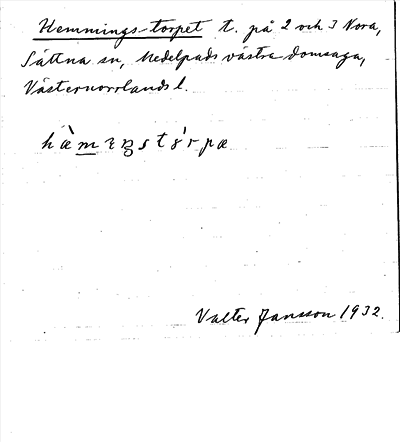 Hemmings-torpet t. på 2 och 3 Nora,
Sättna sn, Medelpads västra domsaga,
Västernorrlands l.
Valter Jansson 1932.